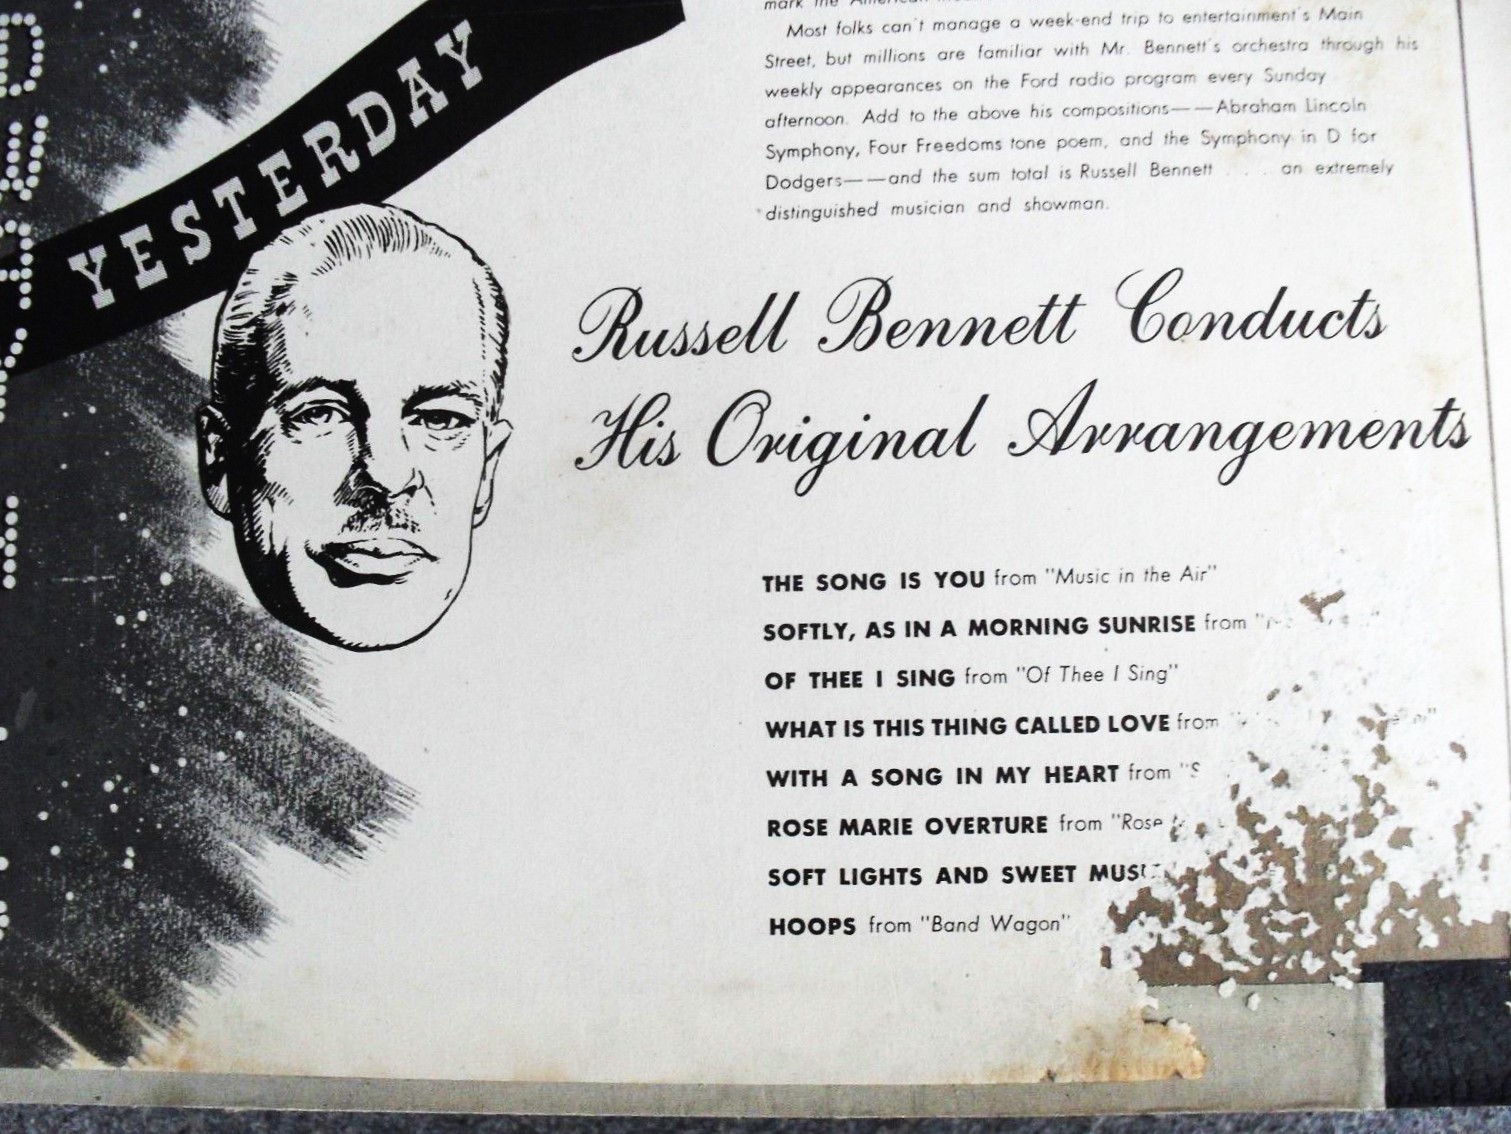 YESTERDAY
mark the American
Most folks can't manage a week-end trip to entertainment's Main
Street, but millions are familiar with Mr. Bennett's orchestra through his
weekly appearances on the Ford radio program every Sunday
afternoon. Add to the above his compositions——Abraham Lincoln
Symphony, Four Freedoms tone poem, and the Symphony in D for
Dodgers——and the sum total is Russell Bennett . . . an extremely
distinguished musician and showman.
Russell Bennett Conducts
His Original Arrangements
THE SONG IS YOU from "Music in the Air"
SOFTLY, AS IN A MORNING SUNRISE from
OF THEE I SING from "Of Thee I Sing"
WHAT IS THIS THING CALLED LOVE from
WITH A SONG IN MY HEART from "S
ROSE MARIE OVERTURE from "Rose
SOFT LIGHTS AND SWEET
HOOPS from "Band Wagon"